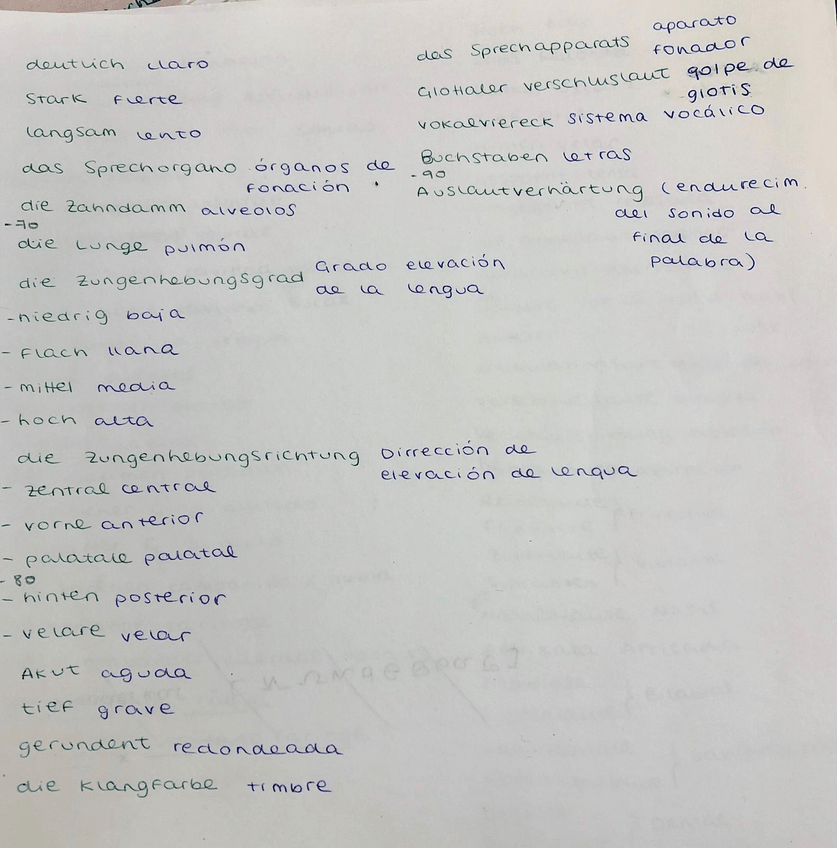 deutlich claro
stark fuerte
langsam lento
das Sprechorgano órganos de
fonación
die Zahndamm alveolos
-70
die Lunge pulmón
die Zungenhebungsgrad Grado elevación
de la lengua
-niedrig baja
- Flach llana
- mittel media
- hoch alta
die Zungenhebungsrichtung Dirrección de
elevación de lengua
- zentral central
- vorne anterior
- palatale palatal
- 80
- hinten posterior
- velare velar
Akut aguda
tief grave
gerundent redondeada
die Klangfarbe timbre
aparato
das Sprechapparats fonador
Glottaler verschluslaut golpe de
glotis
vokalviereck sistema vocálico
Buchstaben letras
-90
Auslautverhärtung (endurecim.
del sonido al
final de la
palabra)